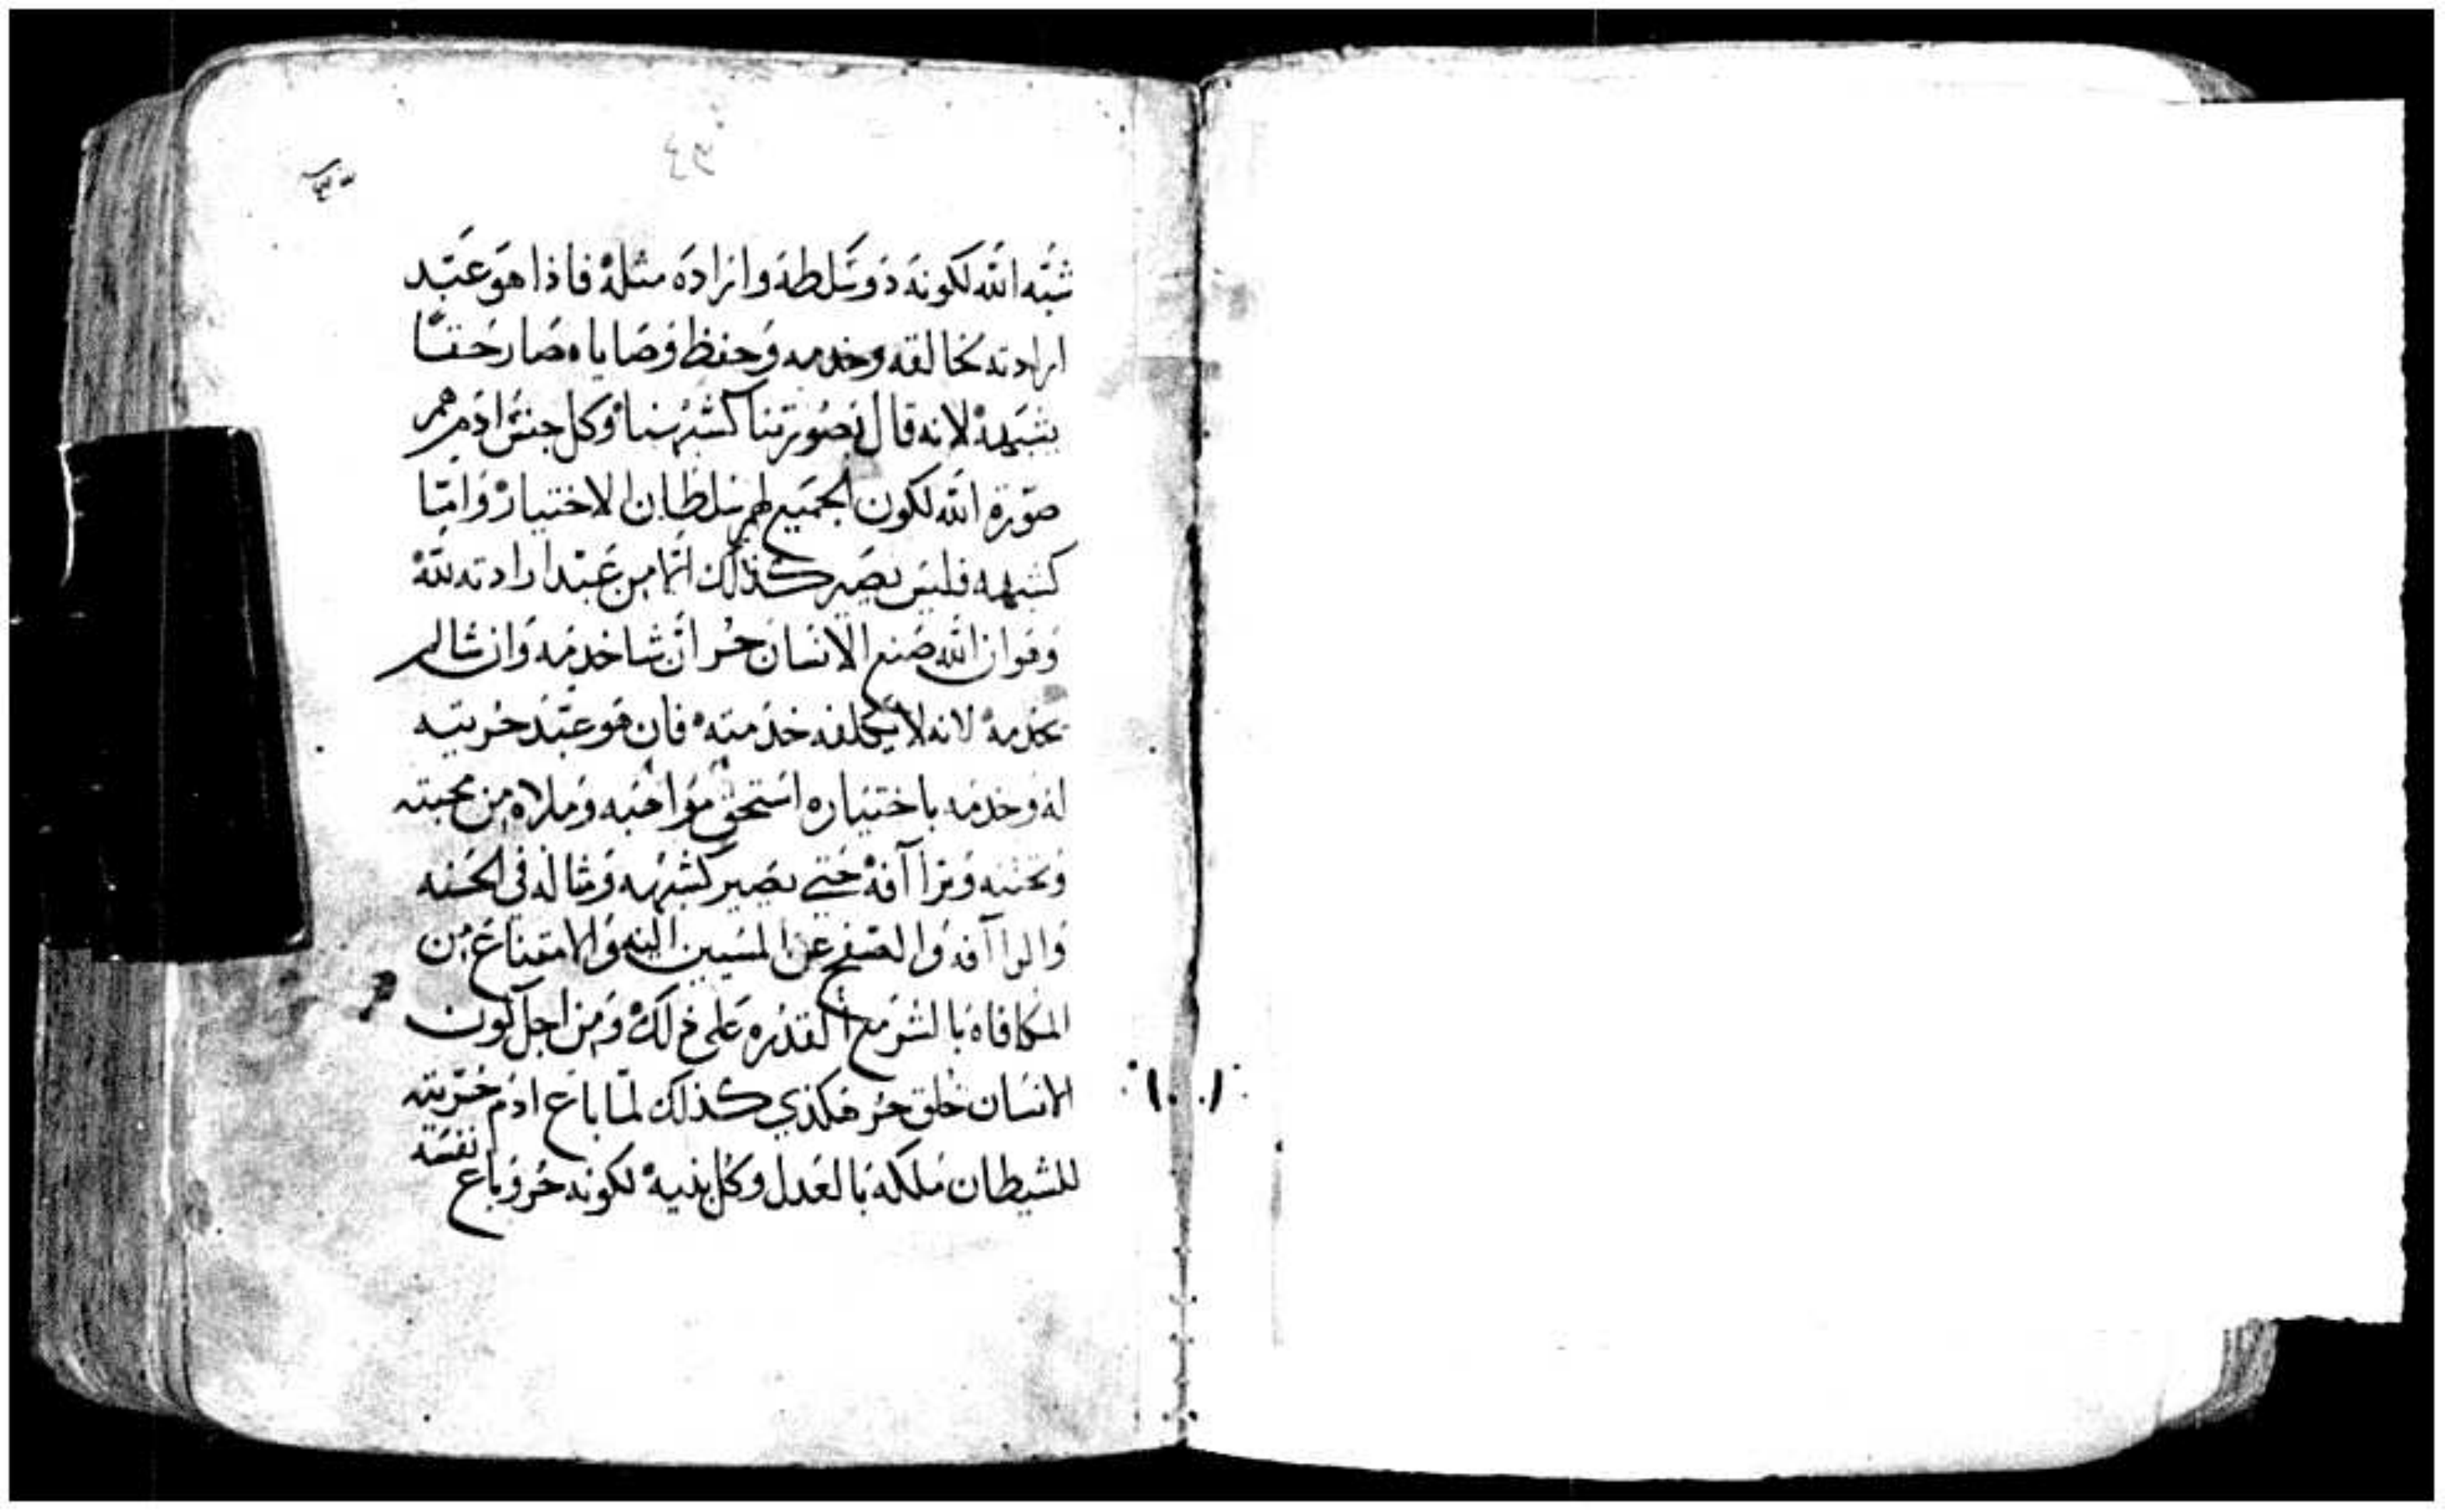 شبه الله لكونه ذو سلطه وارادة مثله فاذا هو عبد
ارادته لخالقه وخدمه وحفظ وصاياه صار حقا
بشبهه لانه قال بصورتنا كشبهنا وكل جنس ادم هم
صورة الله لكون الجميع لهم سلطان الاختيار واما
كشبهه فليس يصير كذلك انما من عبد ارادته لله
وهو ان الله صنع الانسان حر ان شا خدمه وان شا لم
يخدمه لانه لا يكلفه خدمته فان هو عبد حريته
له وخدمه باختياره استحق مواهبه وملاه من محبته
وتحننه وتراآفه حتى يصير كشبهه ومثاله في الحسنه
والراآفه والصفح عن المسيين اليه والامتناع من
المكافاه بالشر مع القدره على ذلك ومن اجل كون
الانسان خلق حر هكذي كذلك لما باع ادم حريته
للشيطان ملكه بالعدل وكل بنيه لكونه حر وباع
نفسه